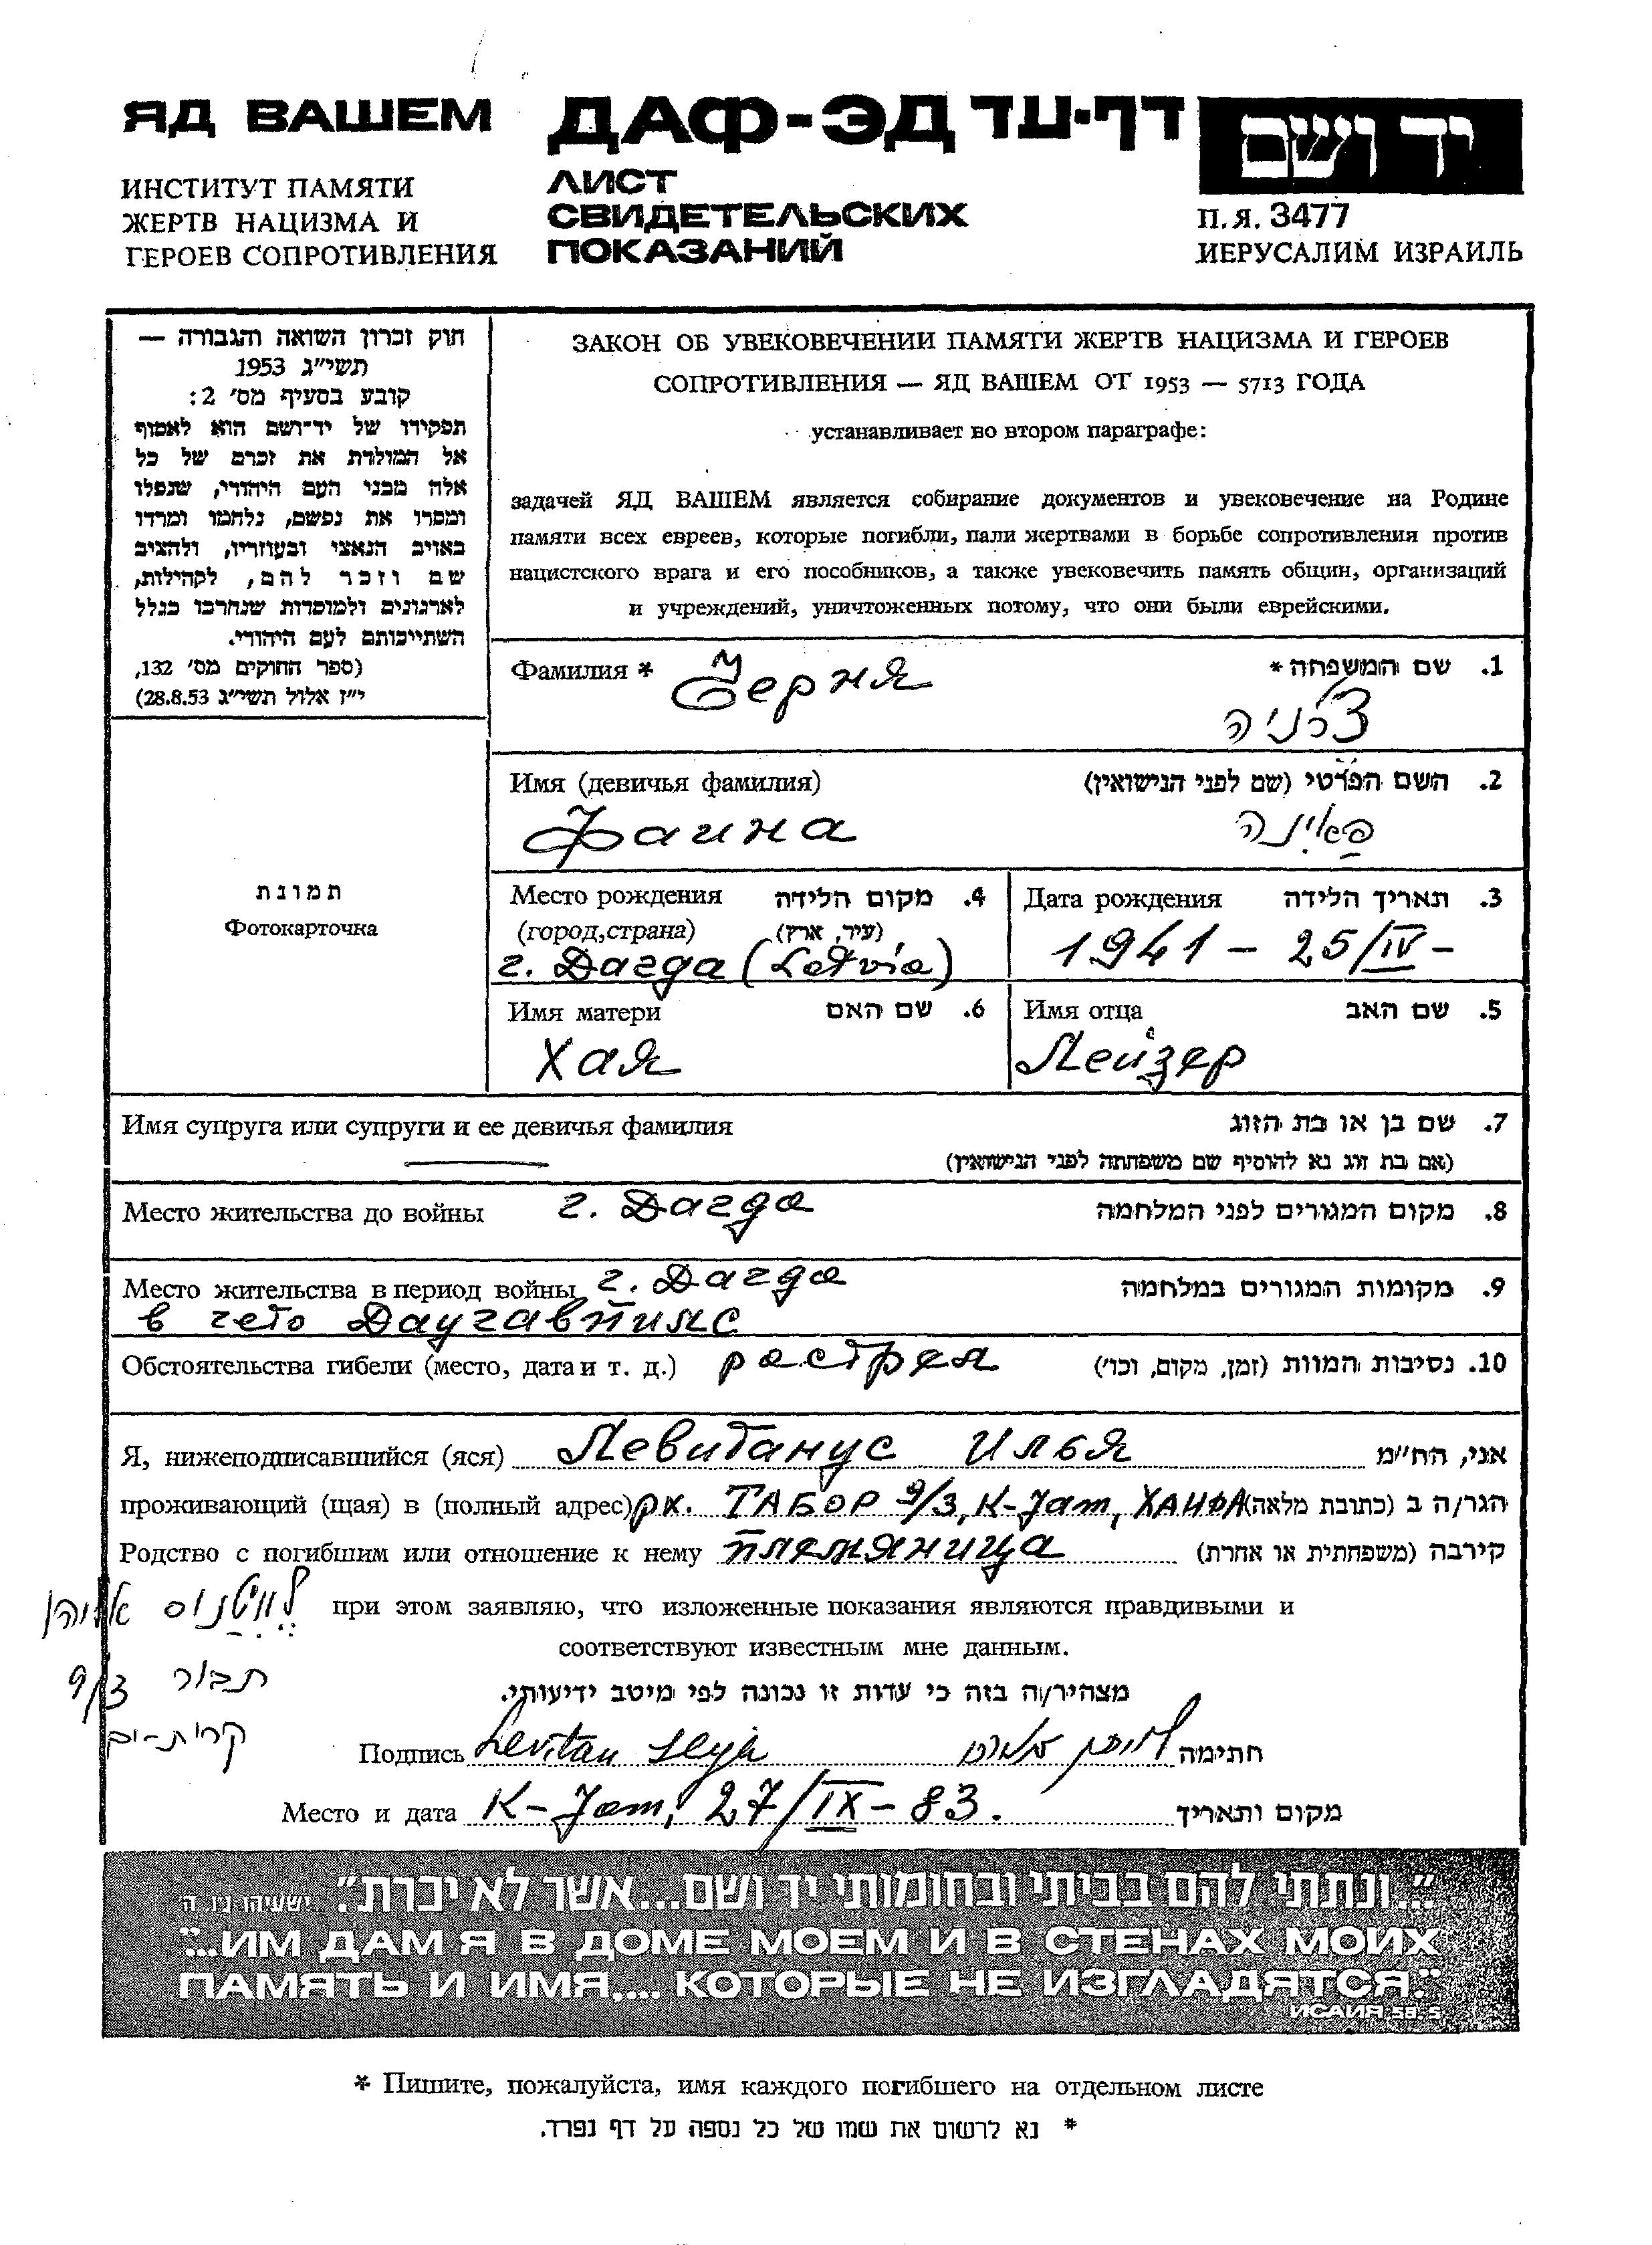 ЯД ВАШЕМ
ИНСТИТУТ ПАМЯТИ
ЖЕРТВ НАЦИЗМА И
ГЕРОЕВ СОПРОТИВЛЕНИЯ
ДАФ-ЭД דף-עד
ЛИСТ
СВИДЕТЕЛЬСКИХ
ПОКАЗАНИЙ
יד ושם
П.Я. 3477
ИЕРУСАЛИМ ИЗРАИЛЬ
חוק זכרון השואה והגבורה —
תשי״ג 1953
קובע בסעיף מס׳ 2:
תפקידו של יד־ושם הוא לאסוף
אל המולדת את זכרם של כל
אלה מבני העם היהודי, שנפלו
ומסרו את נפשם, נלחמו ומרדו
באויב הנאצי ובעוזריו, ולהציב
שם וזכר להם, לקהילות,
לארגונים ולמוסדות שנחרבו בגלל
השתייכותם לעם היהודי.
(ספר החוקים מס׳ 132,
י״ז אלול תשי״ג 28.8.53)
ЗАКОН ОБ УВЕКОВЕЧЕНИИ ПАМЯТИ ЖЕРТВ НАЦИЗМА И ГЕРОЕВ
СОПРОТИВЛЕНИЯ — ЯД ВАШЕМ ОТ 1953 — 5713 ГОДА
устанавливает во втором параграфе:
задачей ЯД ВАШЕМ является собирание документов и увековечение на Родине
памяти всех евреев, которые погибли, пали жертвами в борьбе сопротивления против
нацистского врага и его пособников, а также увековечить память общин, организаций
и учреждений, уничтоженных потому, что они были еврейскими.
Фамилия * Черня 1. שם המשפחה *
צ׳רניה
Имя (девичья фамилия) 2. השם הפרטי (שם לפני הנישואין)
Фаина פאינה
תמונת
Фотокарточка
Место рождения 4. מקום הלידה
(город,страна) (עיר, ארץ)
г. Дагда (Latvia)
Дата рождения 3. תאריך הלידה
1941 - 25/IV -
Имя матери 6. שם האם
Хая
Имя отца 5. שם האב
Лейзер
Имя супруга или супруги и ее девичья фамилия 7. שם בן או בת הזוג
(אם בת זוג נא להוסיף שם משפחתה לפני הנישואין)
Место жительства до войны г. Дагда 8. מקום המגורים לפני המלחמה
Место жительства в период войны г. Дагда 9. מקומות המגורים במלחמה
в гето Даугавпилс
Обстоятельства гибели (место, дата и т. д.) растрел 10. נסיבות המוות (זמן, מקום, וכו׳)
Я, нижеподписавшийся (яся) Левитанус Илья אני, הח״מ
проживающий (щая) в (полный адрес) рх. ТАБОР 9/3, K-Jam, ХАИФА הגר/ה ב (כתובת מלאה)
Родство с погибшим или отношение к нему племяница קירבה (משפחתית או אחרת)
לויטנוס
при этом заявляю, что изложенные показания являются правдивыми и
соответствуют известным мне данным.
תבור 9/3
קרית-ים
מצהיר/ה בזה כי עדות זו נכונה לפי מיטב ידיעותי.
Подпись Levitan חתימה
Место и дата K-Jam, 27/IX-83. מקום ותאריך
״...ונתתי להם בביתי ובחומותי יד ושם...אשר לא יכרת״. ישעיהו נ״ו, ה׳
"...ИМ ДАМ Я В ДОМЕ МОЕМ И В СТЕНАХ МОИХ
ПАМЯТЬ И ИМЯ.... КОТОРЫЕ НЕ ИЗГЛАДЯТСЯ."
ИСАИЯ 56. 5
* Пишите, пожалуйста, имя каждого погибшего на отдельном листе
* נא לרשום את שמו של כל נספה על דף נפרד.